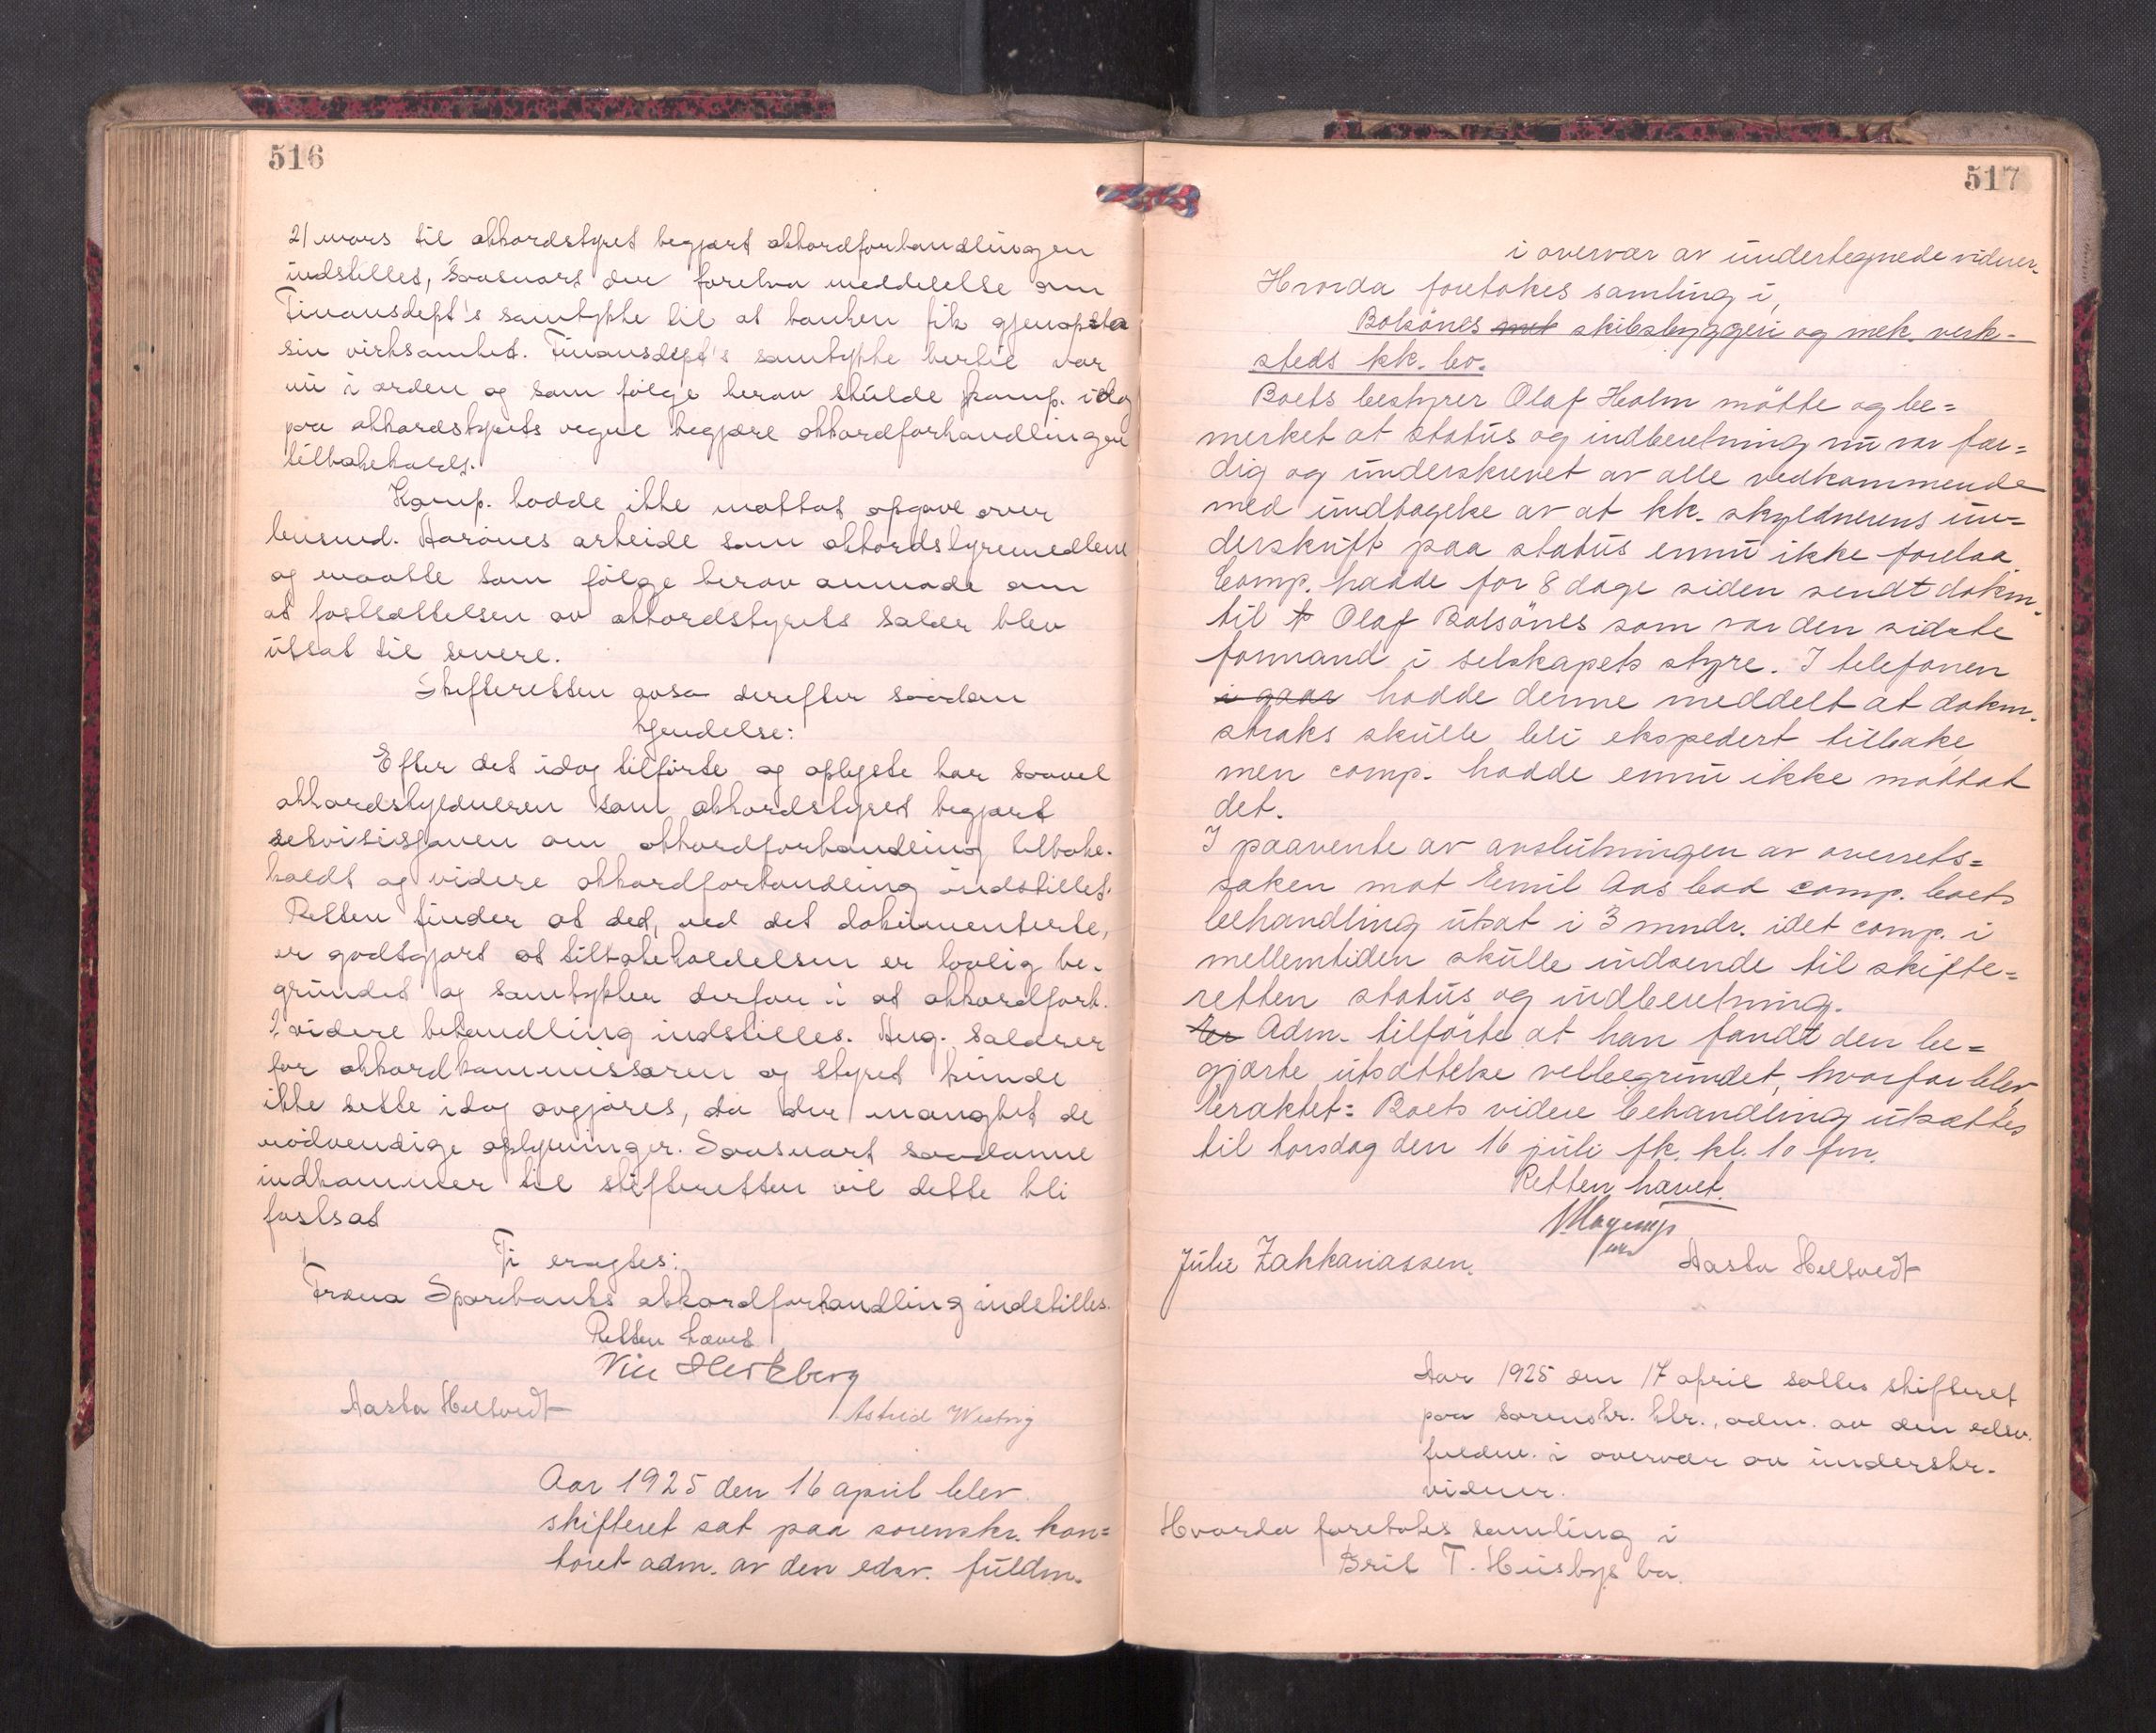 516
21 mars til akkordstyret begjært akkordforhandlingen
indstilles, saasnart der forelaa meddelelse om
Finansdept's samtykke til at banken fik gjenopta
sin virksomhet. Finansdept's samtykke hertil var
nu i orden og som følge herav skulde komp. idag
paa akkordstyrets vegne begjære akkordforhandlingen
tilbakeholdt.
Komp. hadde ikke mottat opgave over
lensmd. Aarønes arbeide som akkordstyremedlem
og maatte som følge herav anmode om
at fastsættelsen av akkordstyrets salær blev
utsat til senere.
Skifteretten avsa derefter saadan
kjendelse:
Efter det idag tilførte og oplyste har saavel
akkordskyldneren som akkordstyret begjært
rekvisisjonen om akkordforhandling tilbake-
holdt og videre akkordforhandling indstillet.
Retten finder at det, ved det dokumenterte,
er godtgjort at tilbakeholdelsen er lovlig be-
grundet og samtykker derfor i at akkordforh.
s videre behandling indstilles. Ang. salærer
for akkordkommissæren og styret kunde
ikke dette idag avgjøres, da der manglet de
nødvendige oplysninger. Saasnart saadanne
indkommer til skifteretten vil dette bli
fastsat
Ti eragtes:
Fræna Sparebanks akkordforhandling indstilles.
Retten hævet
Nic Hertzberg
Aasta Heltvedt
Astrid Westvig
Aar 1925 den 16 april blev
skifteret sat paa sorenskr. kon=
toret adm. av den edsv. fuldm.
517
i overvær av undertegnede vidner.
Hvorda foretokes samling i,
Bolsönes mek skibsbyggeri og mek. verk-
steds kk. bo.
Boets bestyrer Olaf Holm mötte og be=
merket at status og indberetning nu var fær=
dig og underskrevet av alle vedkommende
med undtagelse av at kk. skyldnerens un=
derskrift paa status ennu ikke forelaa.
Comp. hadde for 8 dage siden sendt dokm.
til Olaf Bolsönes som var den sidste
formand i selskapets styre. I telefonen
i gaar hadde denne meddelt at dokm.
straks skulle bli ekspedert tilbake,
men comp. hadde ennu ikke mottat
det.
I paavente av avslutningen av overrets=
saken mot Emil Aas bad comp. boets
behandling utsat i 3 mndr. idet comp. i
mellemtiden skulle indsende til skifte=
retten status og indberetning.
Adm. tilförte at han fandt den be=
gjærte utsættelse velbegrundet, hvorfor blev
eraktet: Boets videre behandling utsættes
til torsdag den 16 juli fk. kl. 10 fm.
Retten hævet.
Julie Zakkariassen.
Aasta Heltvedt
Aar 1925 den 17 april sattes skifteret
paa sorenskr. ktr., adm. av den edsv.
fuldm. i overvær av underskr.
vidner.
Hvorda foretokes samling i
Brit T. Husbys bo.